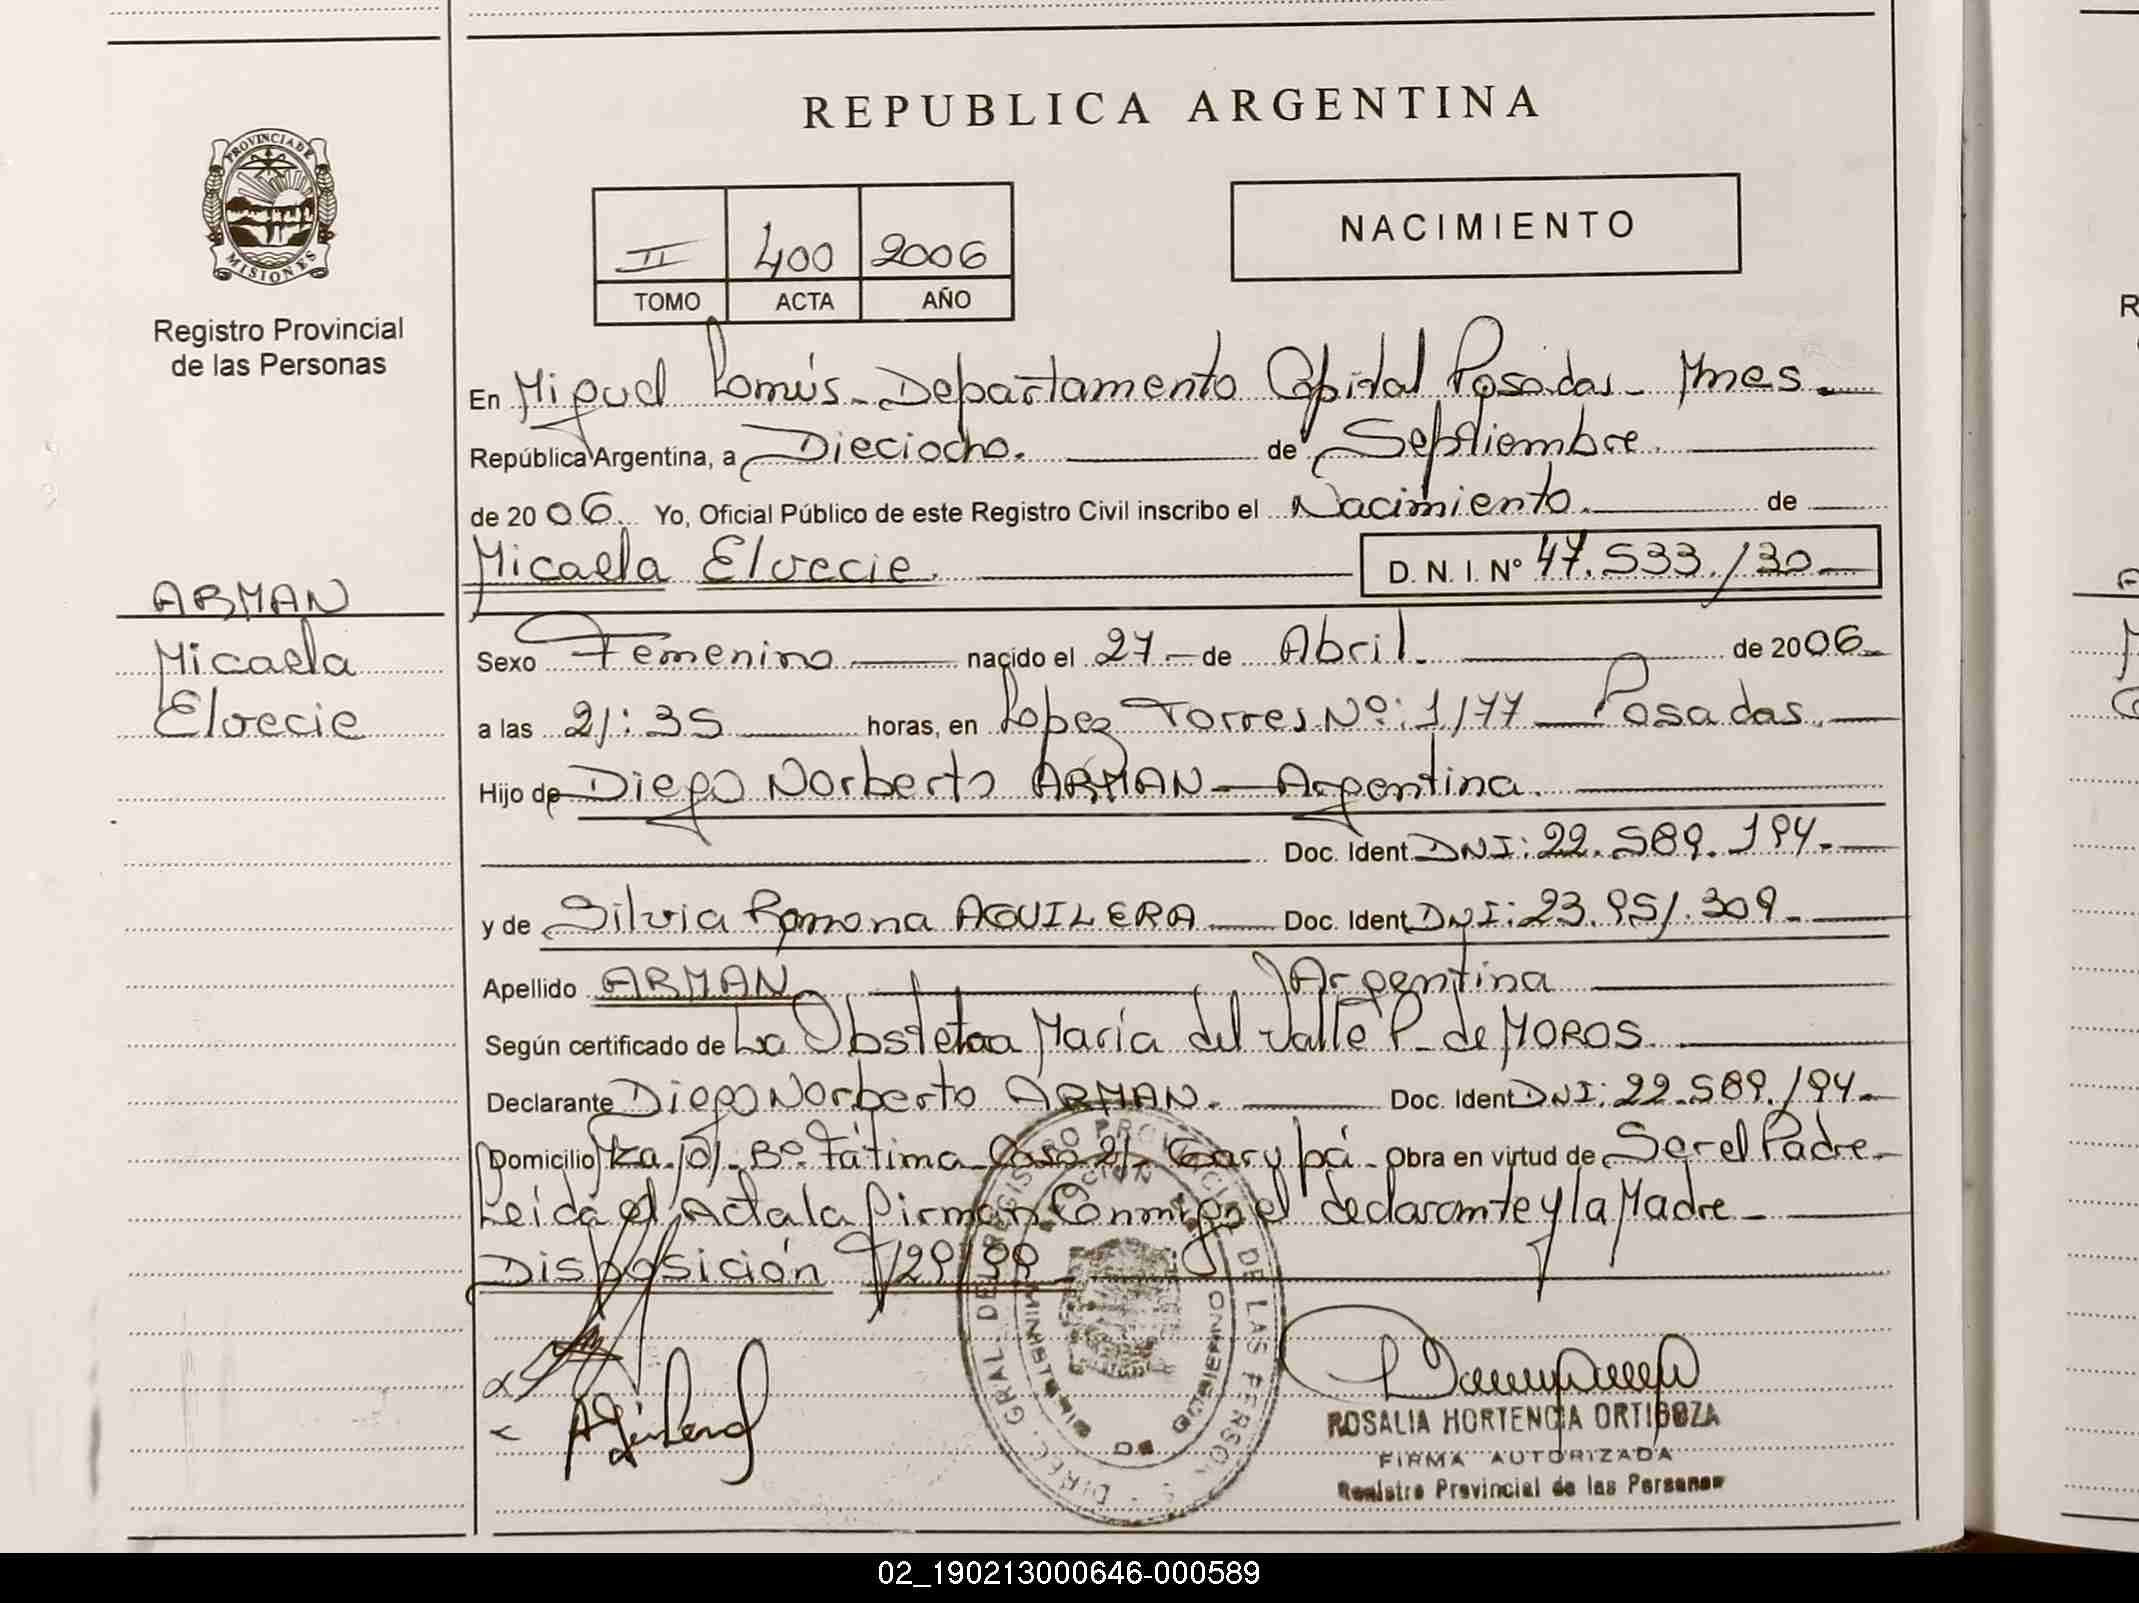 REPUBLICA ARGENTINA
PROVINCIA DE MISIONES
Registro Provincial
de las Personas
NACIMIENTO
II 400 2006
TOMO ACTA AÑO
En Miguel Lanús - Departamento Capital Posadas - Mnes.
República Argentina, a Dieciocho. de Septiembre.
de 2006. Yo, Oficial Público de este Registro Civil inscribo el Nacimiento. de
Micaela Elvecie. D. N. I. Nº 47.533.130
ARMAN
Micaela
Elvecie
Sexo Femenino nacido el 27 - de Abril. de 2006.
a las 21:35 horas, en Lopez Torres Nº: 1177 Posadas.
Hijo de Diego Norberto ARMAN - Argentina.
Doc. Ident. DNI: 22.589.194.
y de Silvia Ramona AGUILERA Doc. Ident. DNI: 23.951.309.
Apellido ARMAN Argentina
Según certificado de La Obstetra María del Valle P. de MOROS.
Declarante Diego Norberto ARMAN. Doc. Ident. DNI: 22.589.194.
Domicilio Mza. 101. Bº. Fátima Casa 21. Garupá. Obra en virtud de Ser el Padre
Leida el Acta la firman Conmigo el declarante y la Madre
Disposición
DIREC. GRAL. DEL REGISTRO PROVINCIAL DE LAS PERSONAS
MINISTERIO DE GOBIERNO
ROSALIA HORTENCIA ORTIGOZA
FIRMA AUTORIZADA
Registro Provincial de las Personas
02_190213000646-000589